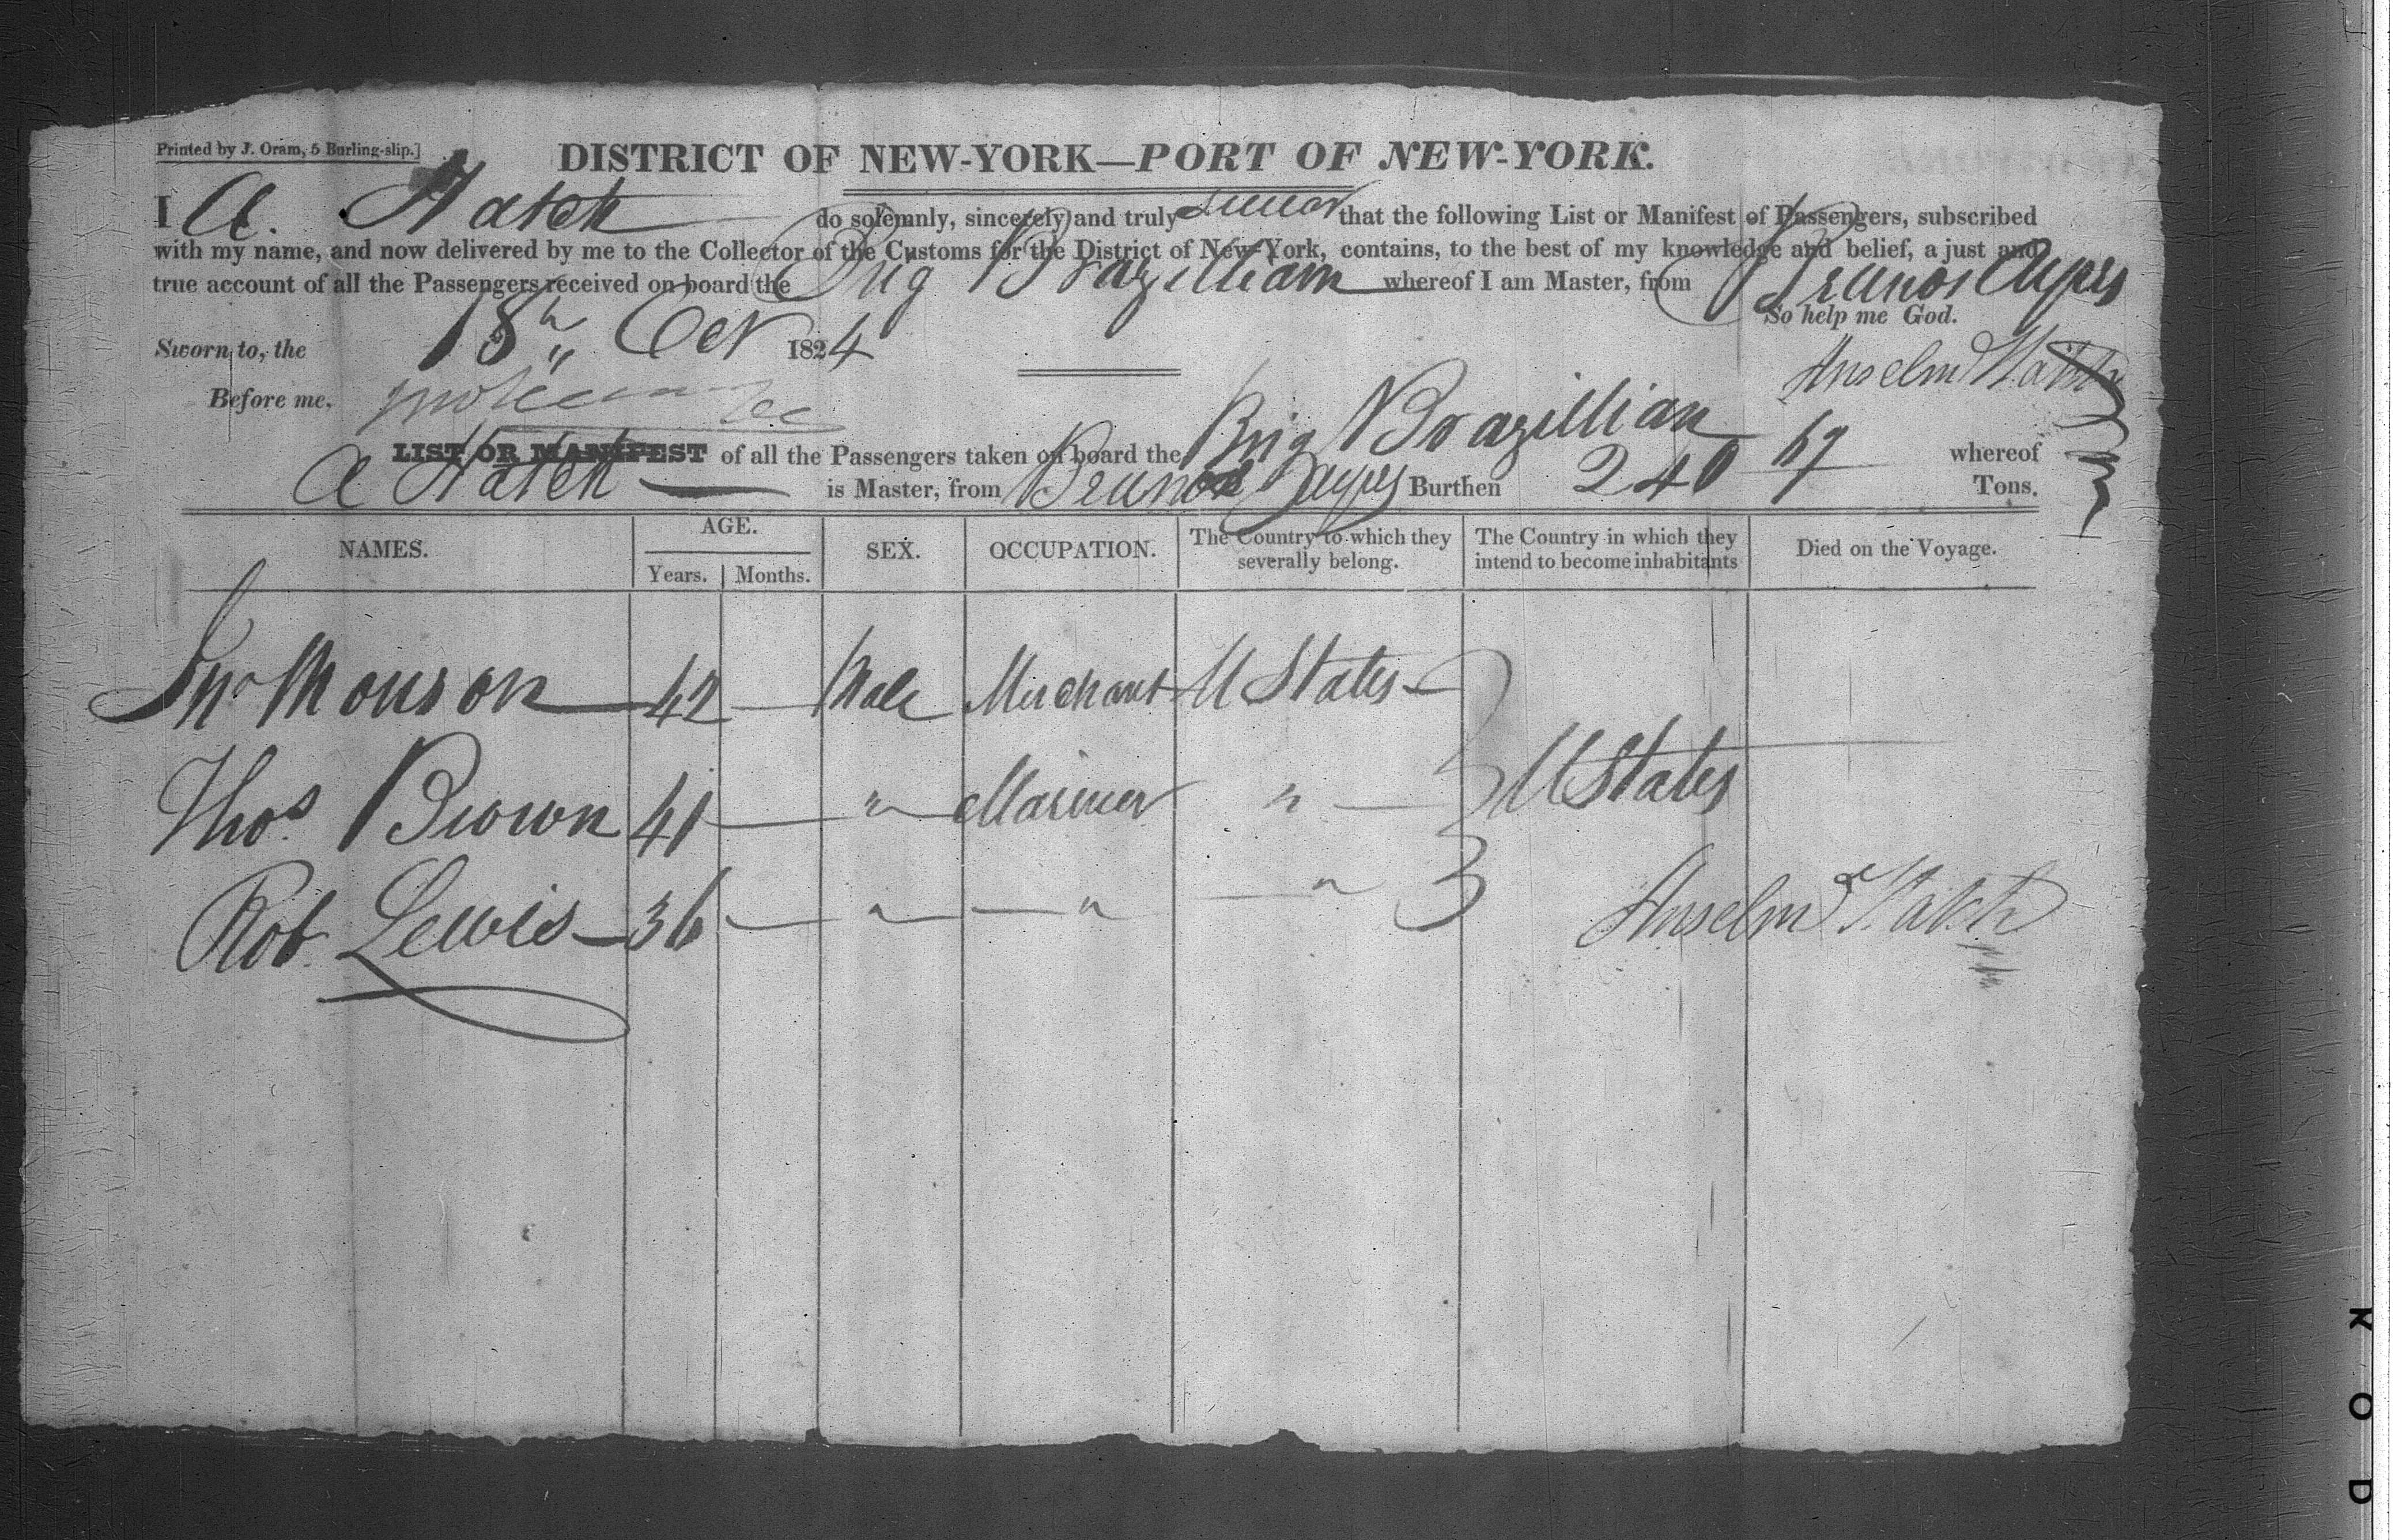 Printed by J. Oram, 5 Burling-slip.]
DISTRICT OF NEW-YORK—PORT OF NEW-YORK.
I A. Hatch do solemnly, sincerely and truly swear that the following List or Manifest of Passengers, subscribed
with my name, and now delivered by me to the Collector of the Customs for the District of New-York, contains, to the best of my knowledge and belief, a just and
true account of all the Passengers received on board the Brig Brazilliam whereof I am Master, from Beunos Ayres
So help me God.
Sworn to, the 18th Oct 1824
Anselm Hatch
Before me,
LIST OR MANIFEST of all the Passengers taken on board the Brig Brazillian whereof
A Hatch is Master, from Beunos Ayres Burthen 240 67 Tons.
NAMES. AGE. SEX. OCCUPATION. The Country to which they severally belong. The Country in which they intend to become inhabitants Died on the Voyage.
Years. Months.
Jno Monson 42 Male Merchant U States
Thos Brown 41 " Mariner " U States
Rob Lewis 36 " " "
Anselm Hatch
K O D